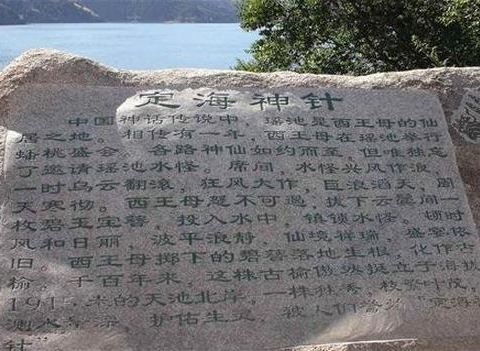 定海神针
中国神话传说中，瑶池是西王母的仙
居之地。相传有一年，西王母在瑶池举行
蟠桃盛会，各路神仙如约而至，但唯独忘
了邀请瑶池水怪。席间，水怪兴风作浪
一时乌云翻滚，狂风大作，巨浪滔天，周
天寒彻。西王母怒不可遏，拔下云鬓间一
枚碧玉宝簪，投入水中，镇锁水怪。顿时
风和日丽，波平浪静，仙境祥瑞，盛宴依
旧。西王母掷下的碧簪落地生根，化作古
榆。千百年来，这株古榆傲然挺立于海拔
191 米的天池北岸。一株独秀，枝繁叶茂，
测 ，护佑生灵，被人们誉为"定海神
针"